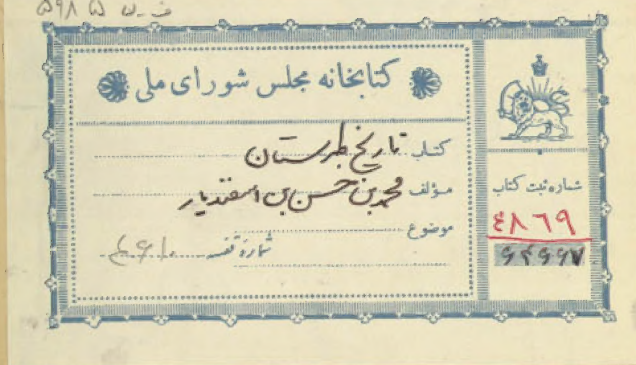 ۵۹۸۵
کتابخانه مجلس شورای ملی
کتاب تاریخ طبرستان
مؤلف محمد بن حسن بن اسفندیار
موضوع
شماره قفسه
شماره ثبت کتاب
٤٨٦٩
۶۲۶۶۷